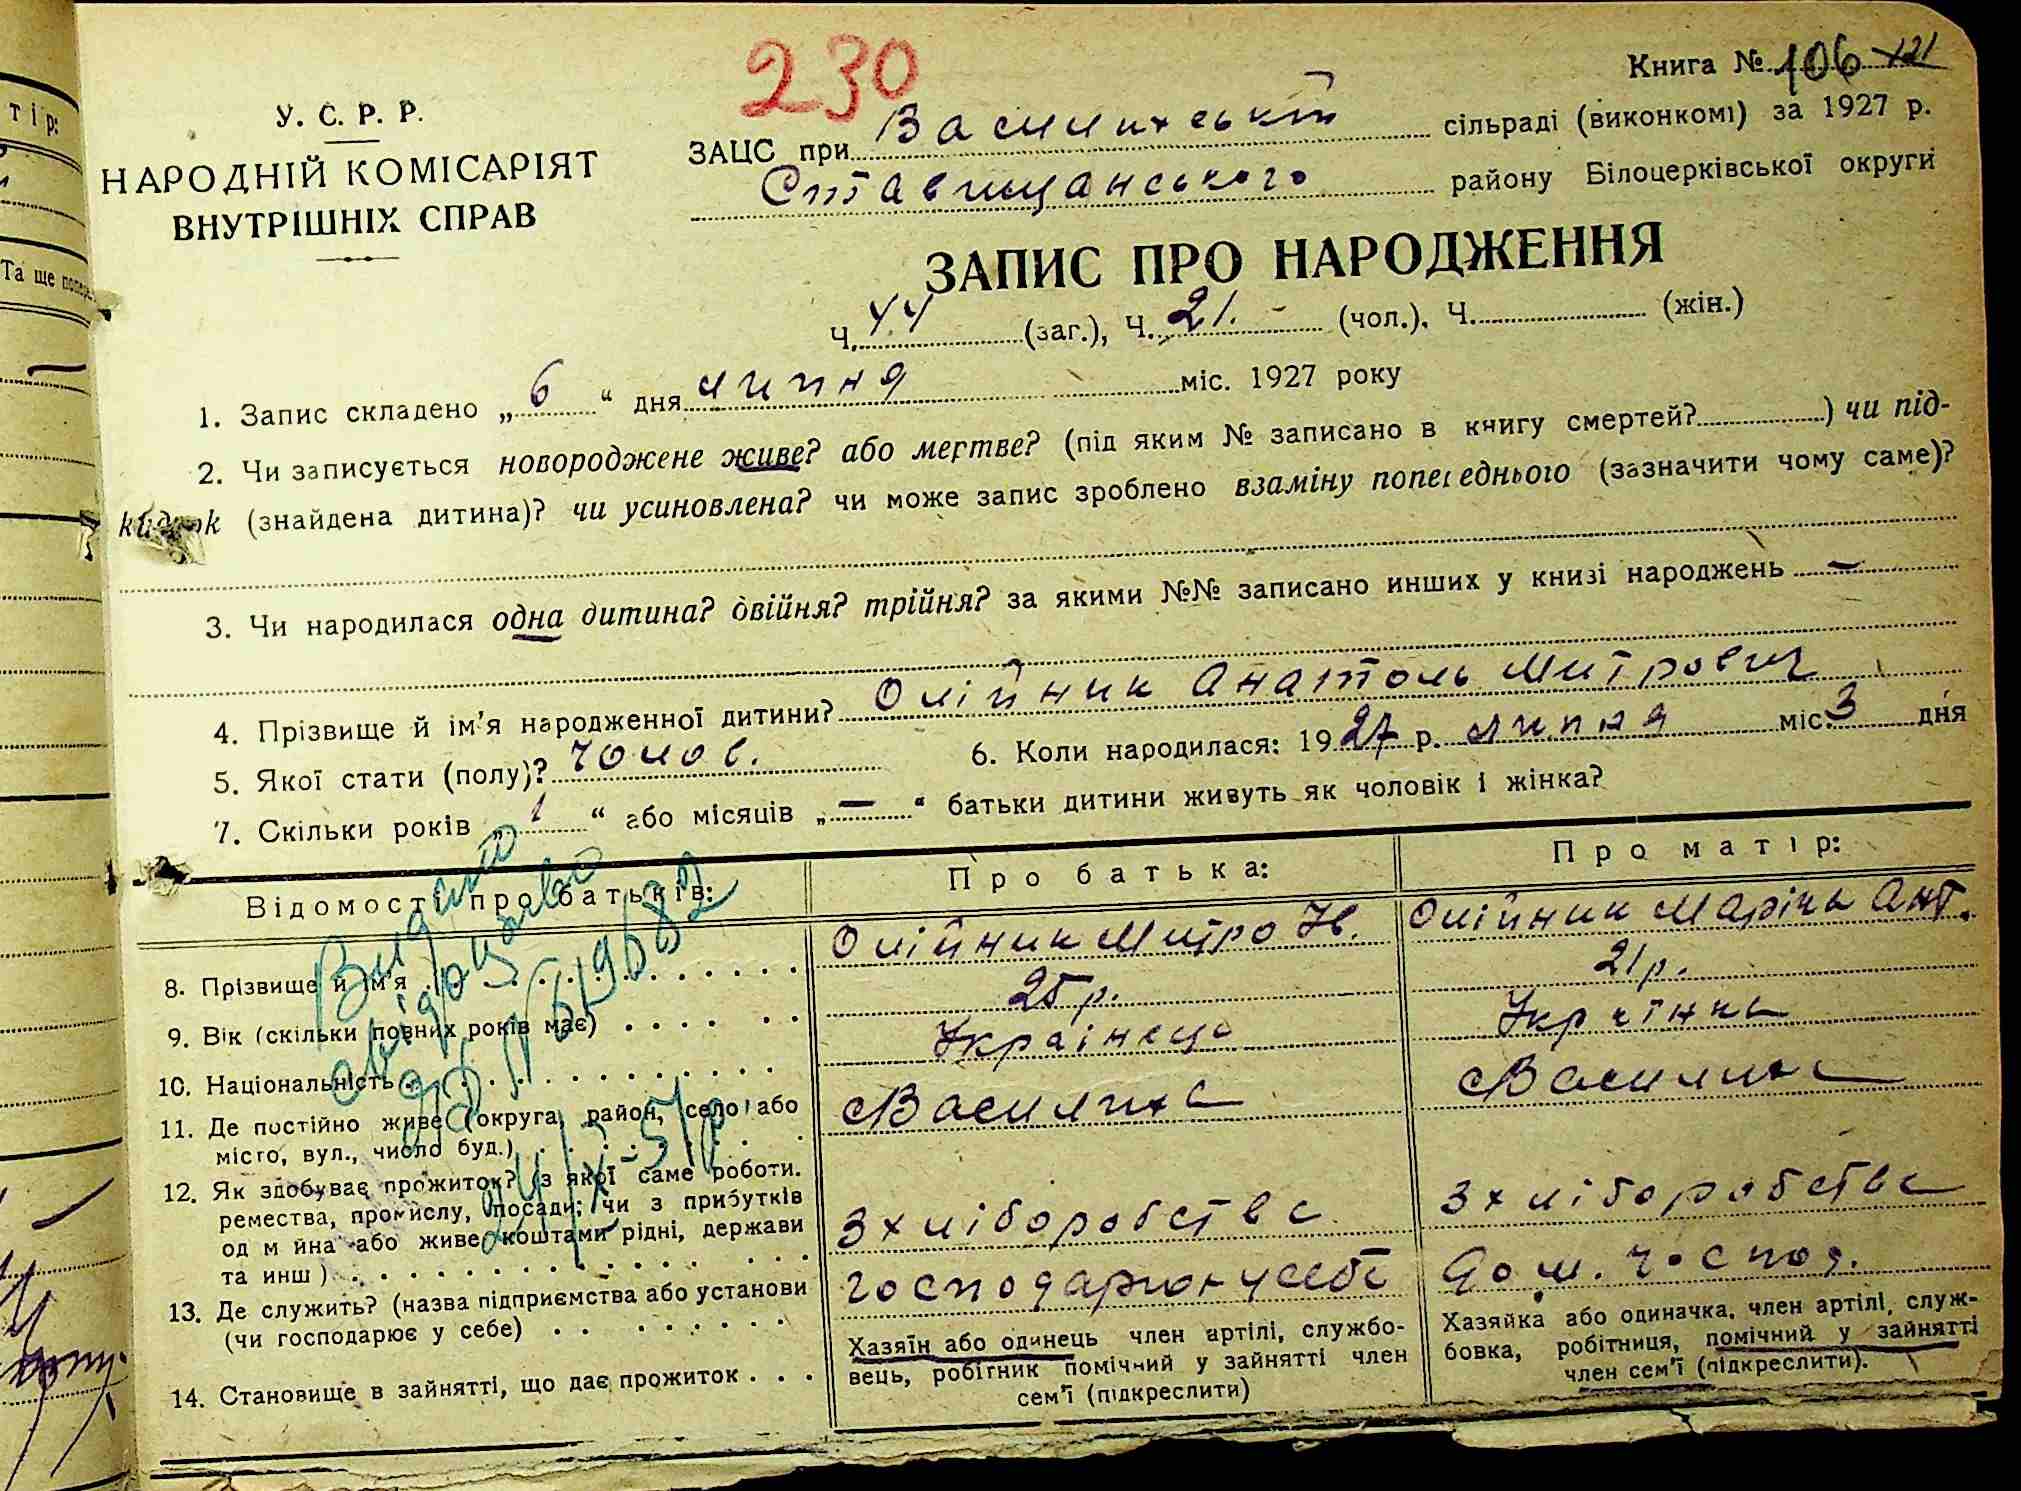 230
Книга № 106 121
У. С. Р. Р.
НАРОДНІЙ КОМІСАРІЯТ
ВНУТРІШНІХ СПРАВ
ЗАЦС при Василихській сільраді (виконкомі) за 1927 р.
Ставищанського району Білоцерківської округи
ЗАПИС ПРО НАРОДЖЕННЯ
Ч. 44 (заг.), Ч. 21. - (чол.), Ч. (жін.)
1. Запис складено „ 6 “ дня липня міс. 1927 року
2. Чи записується новороджене живе? або мертве? (під яким № записано в книгу смертей? ) чи під-
кидьок (знайдена дитина)? чи усиновлена? чи може запис зроблено взаміну попереднього (зазначити чому саме)?
3. Чи народилася одна дитина? двійня? трійня? за якими №№ записано инших у книзі народжень —
4. Прізвище й ім'я народженної дитини? Олійник Анатоль Митрович
5. Якої стати (полу)? чолов. 6. Коли народилася: 1927 р. липня міс. 3 дня
7. Скільки років „ 1 “ або місяців „ — “ батьки дитини живуть як чоловік і жінка?
Відомості про батьків: Про батька: Про матір:
8. Прізвище й ім'я Олійник Митро Ів. Олійник Маріна Ант.
9. Вік (скільки повних років має) 25 р. 21 р.
10. Національність Українець Українка
11. Де постійно живе (округа, район, село або
місто, вул., число буд.) с Василиха с Василиха
12. Як здобуває прожиток? (з якої саме роботи.
ремества, промислу, посади; чи з прибутків
од майна або живе коштами рідні, держави
та инш) З хліборобства З хліборобства
13. Де служить? (назва підприємства або установи
(чи господарює у себе) господарює у себе Дом. господ.
14. Становище в зайнятті, що дає прожиток
Хазяїн або одинець член артілі, службо-
вець, робітник помічний у зайнятті член
сем'ї (підкреслити)
Хазяйка або одиначка, член артілі, служ-
бовка, робітниця, помічний у зайнятті
член сем'ї (підкреслити).
Видано
свідоцтво
тір:
Та ще попере